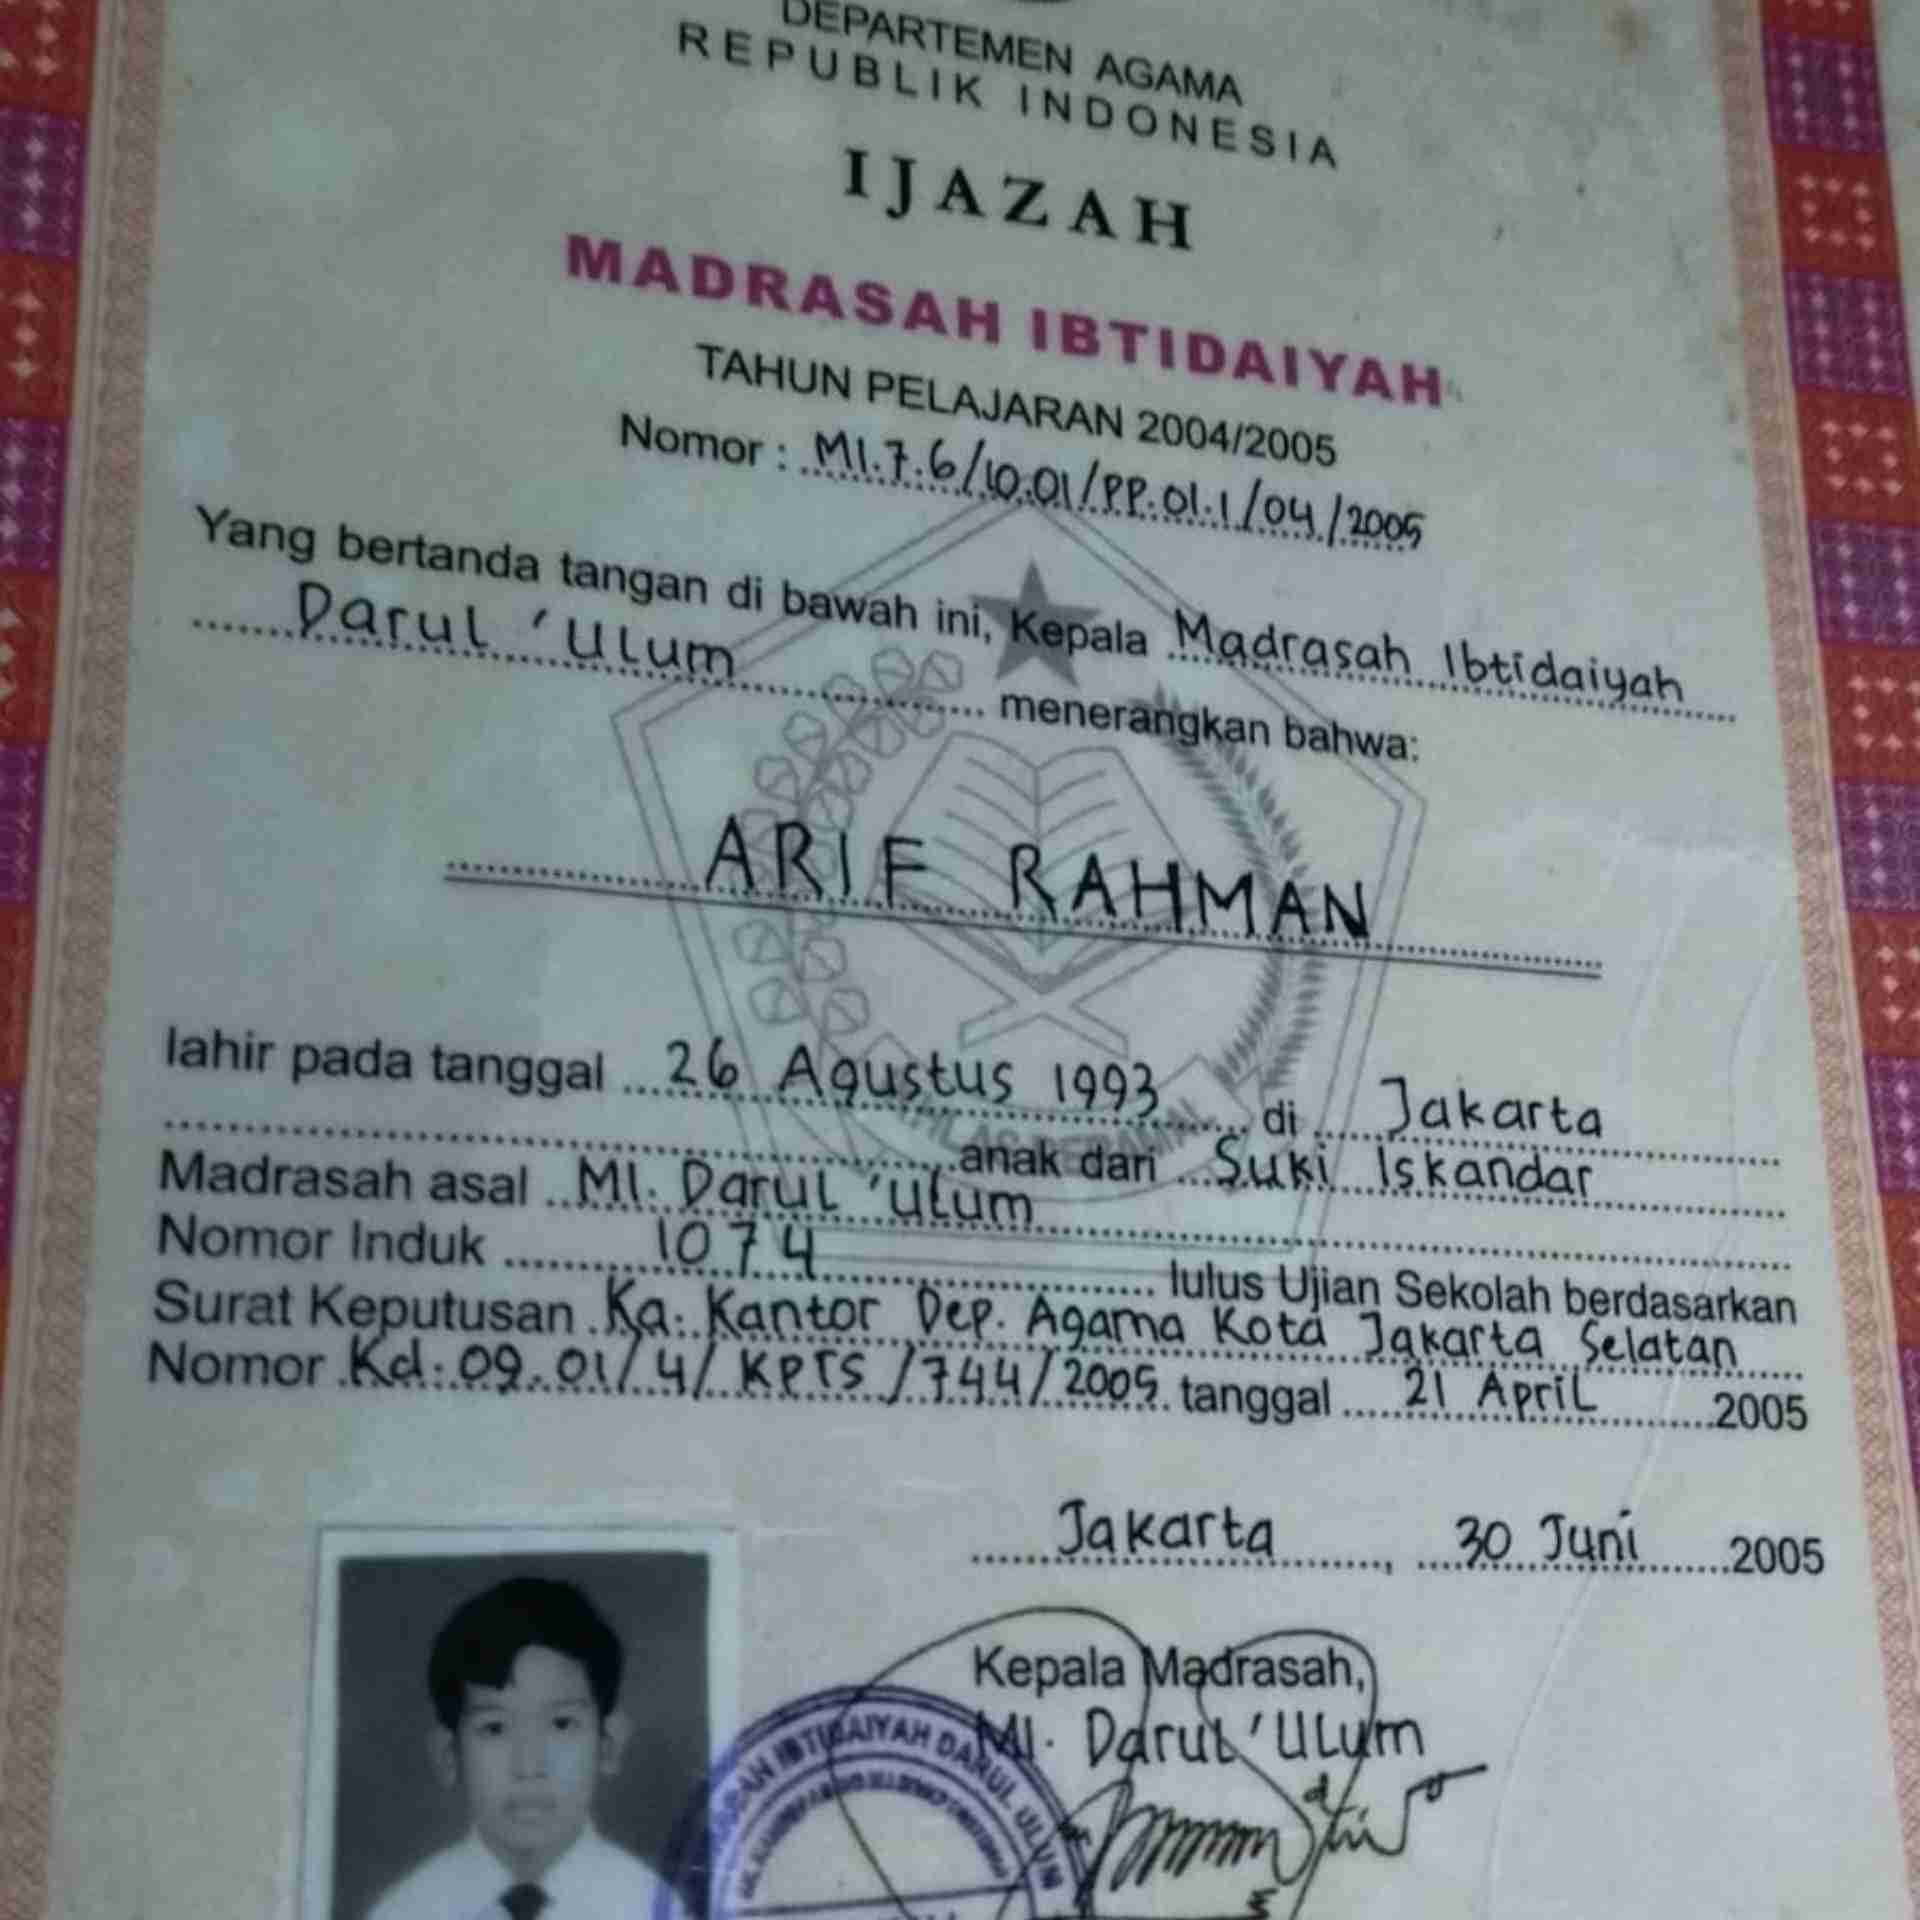 DEPARTEMEN AGAMA
REPUBLIK INDONESIA
IJAZAH
MADRASAH IBTIDAIYAH
TAHUN PELAJARAN 2004/2005
Nomor : MI.7.6/10.01/PP.01.1/04/2005
Yang bertanda tangan di bawah ini, Kepala Madrasah Ibtidaiyah
Darul 'Ulum menerangkan bahwa:
ARIF RAHMAN
lahir pada tanggal 26 Agustus 1993 di Jakarta
anak dari Suki Iskandar
Madrasah asal MI. Darul 'Ulum
Nomor Induk 1074 lulus Ujian Sekolah berdasarkan
Surat Keputusan Ka. Kantor Dep. Agama Kota Jakarta Selatan
Nomor Kd.09.01/4/KPTS/744/2005 tanggal 21 April 2005
Jakarta, 30 Juni 2005
Kepala Madrasah,
MI. Darul 'Ulum
IBTIDAIYAH DARUL ULUM